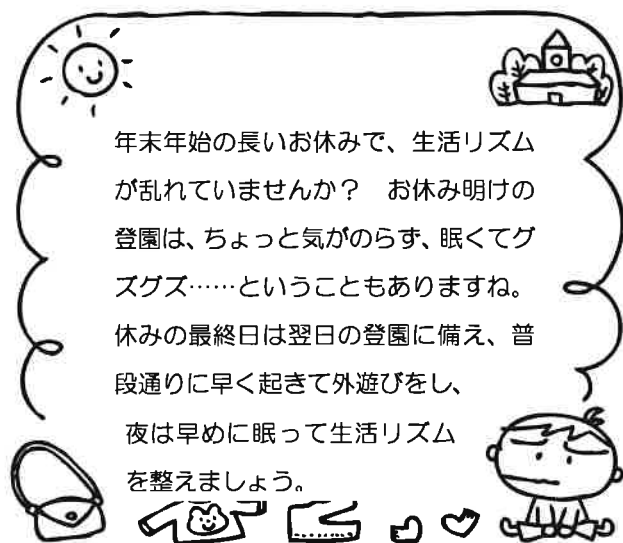 年末年始の長いお休みで、生活リズム
が乱れていませんか？　お休み明けの
登園は、ちょっと気がのらず、眠くてグ
ズグズ……ということもありますね。
休みの最終日は翌日の登園に備え、普
段通りに早く起きて外遊びをし、
夜は早めに眠って生活リズム
を整えましょう。